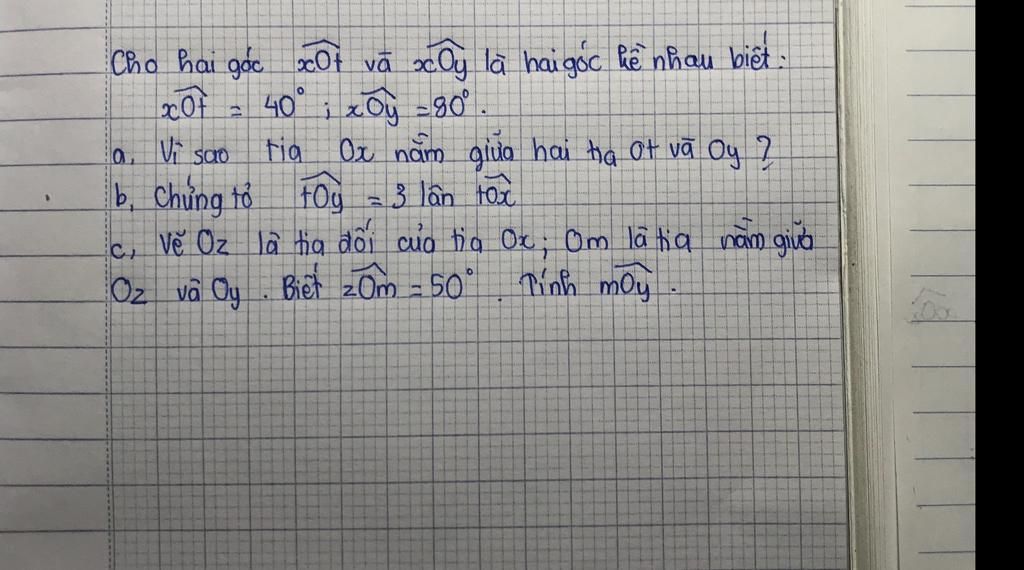 Cho hai góc xOt và xOy là hai góc kề nhau biết:
xOt = 40° ; xOy = 80°.
a, Vì sao tia Ox nằm giữa hai tia Ot và Oy ?
b, Chứng tỏ tOy = 3 lần tOx
c, Vẽ Oz là tia đối của tia Ox; Om là tia nằm giữa
Oz và Oy. Biết zOm = 50°. Tính mOy.